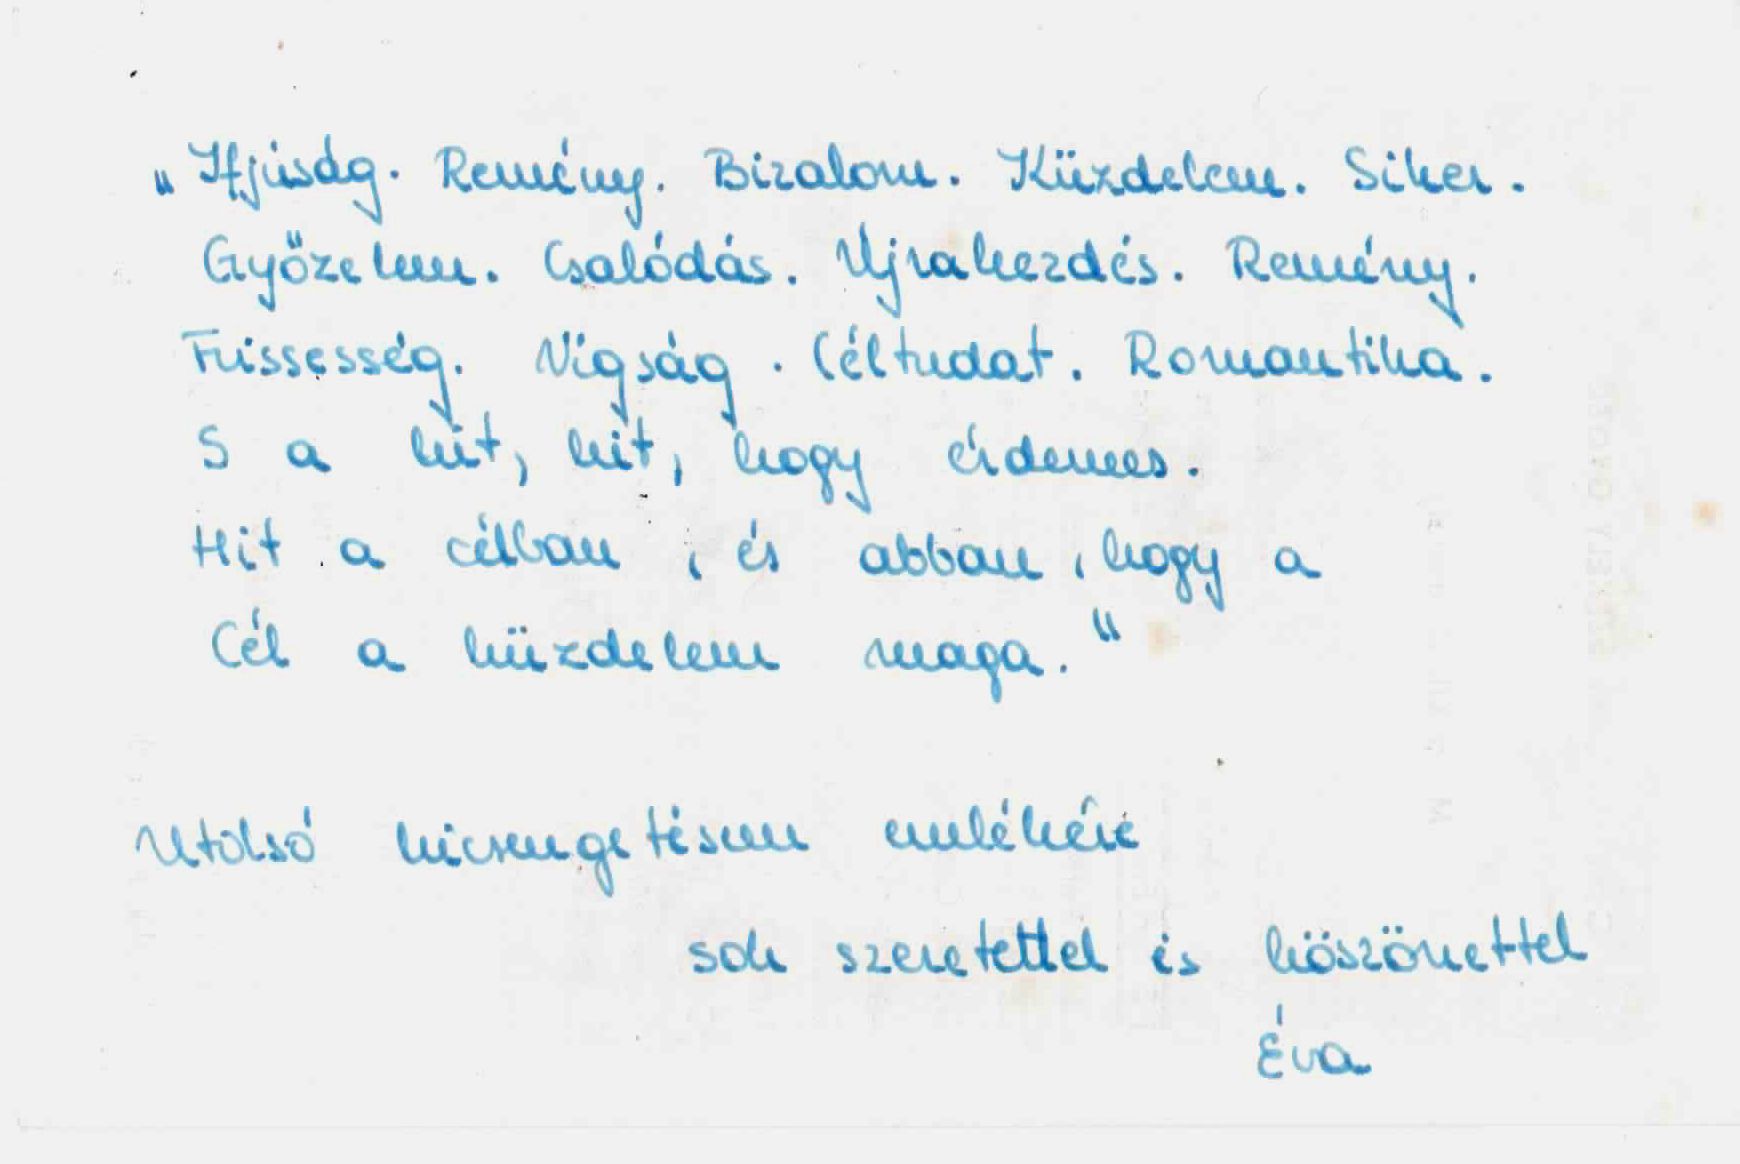 „Ifjúság. Remény. Bizalom. Küzdelem. Siker.
Győzelem. Csalódás. Újrakezdés. Remény.
Frissesség. Vígság. Céltudat. Romantika.
S a hit, hit, hogy érdemes.
Hit a célban, és abban, hogy a
Cél a küzdelem maga."
Utolsó kicsengetésem emlékére
sok szeretettel és köszönettel
Éva